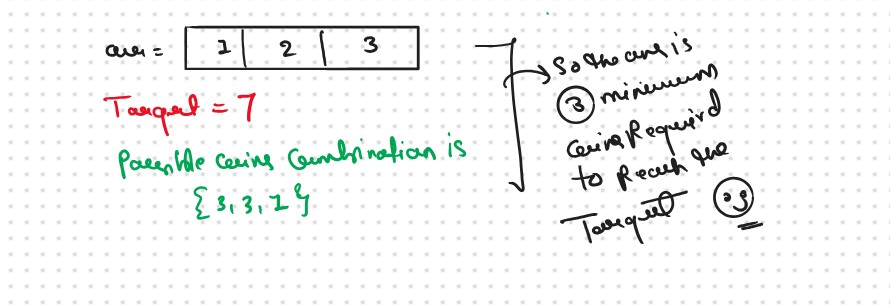 arr = 1 2 3
Target = 7
Possible coins Combination is
{3, 3, 1}
So the ans is
3 minimum
coins Required
to Reach the
Target